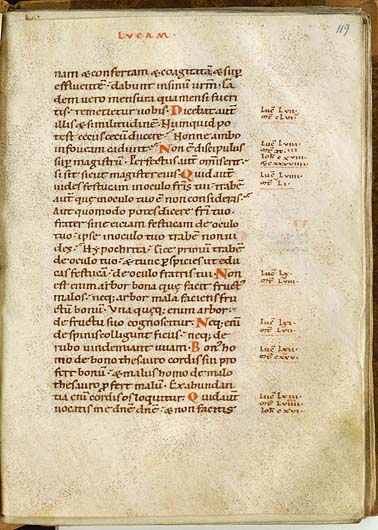 LVCAM·
119
nam & confertam & coagitatā & sup̄
effluentē· dabunt insinū urm̄· Ea
dem uero mensura qua mensi fueri
tis· remetietur uobis· Dicebat aut̄
illis & similitudinē· Numquid po
test cecus cecū ducere· Nonne ambo
infoueam cadunt· Non ē discipulus
sup̄ magistrū· Perfectus aut omnis erit·
si sit sicut magister eius· Quid aut
uides festucam inoculo fr̄is tui· trabē
aut quę inoculo tuo ē non consideras·
Aut quomodo potes dicere fr̄i tuo·
frater sine eiciam festucam de oculo
tuo· ipse inoculo tuo trabē non ui
des· Hypochrita· eice primū trabē
de oculo tuo· & tunc p̄spicies ut edu
cas festucā de oculo fratris tui· Non
est enim arbor bona quę facit fructꝰ
malos· neq; arbor mala faciens fru
ctū bonū· Vna quęq; enim arbor·
de fructu suo cognoscitur· Neq; enī
de spinis colligunt ficus· neq; de
rubo uindemiant uuam· Bonꝰ ho
mo de bono thesauro cordis sui pro
fert bonū· & malus homo de malo
thesauro p̄fert malū· Exabundan
tia enī cordis os loquitur· Quid aut
uocatis me dn̄e dn̄e· & non facitis
Luc̄ LVII·
Luc̄ LVIII
Ioh̄ CXVIII
Luc̄ LVIIII
Mt̄ LI·
Luc̄ LX·
Mt̄ LVIII
Luc̄ LXI·
Luc̄ LXII
Mt̄ CXXV·
Luc̄ LXIII
Mt̄ LVIIII
Ioh̄ CXVI·